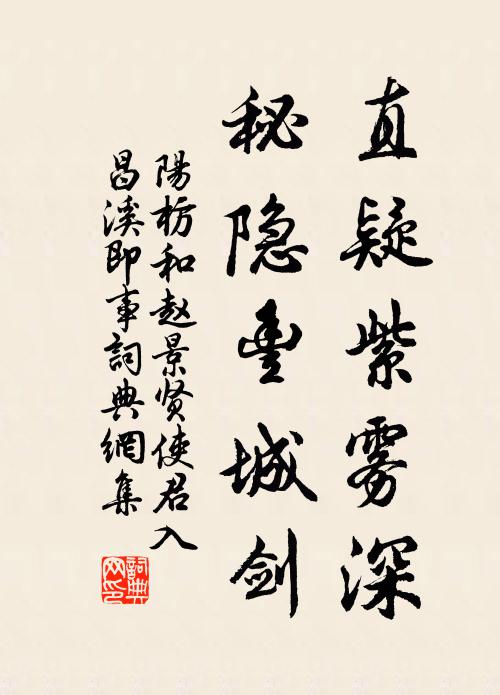 直疑紫雾深
秘隐豊城剑
陽枋和赵景贤使君入
昌溪即事詞典網集
詞典
网印